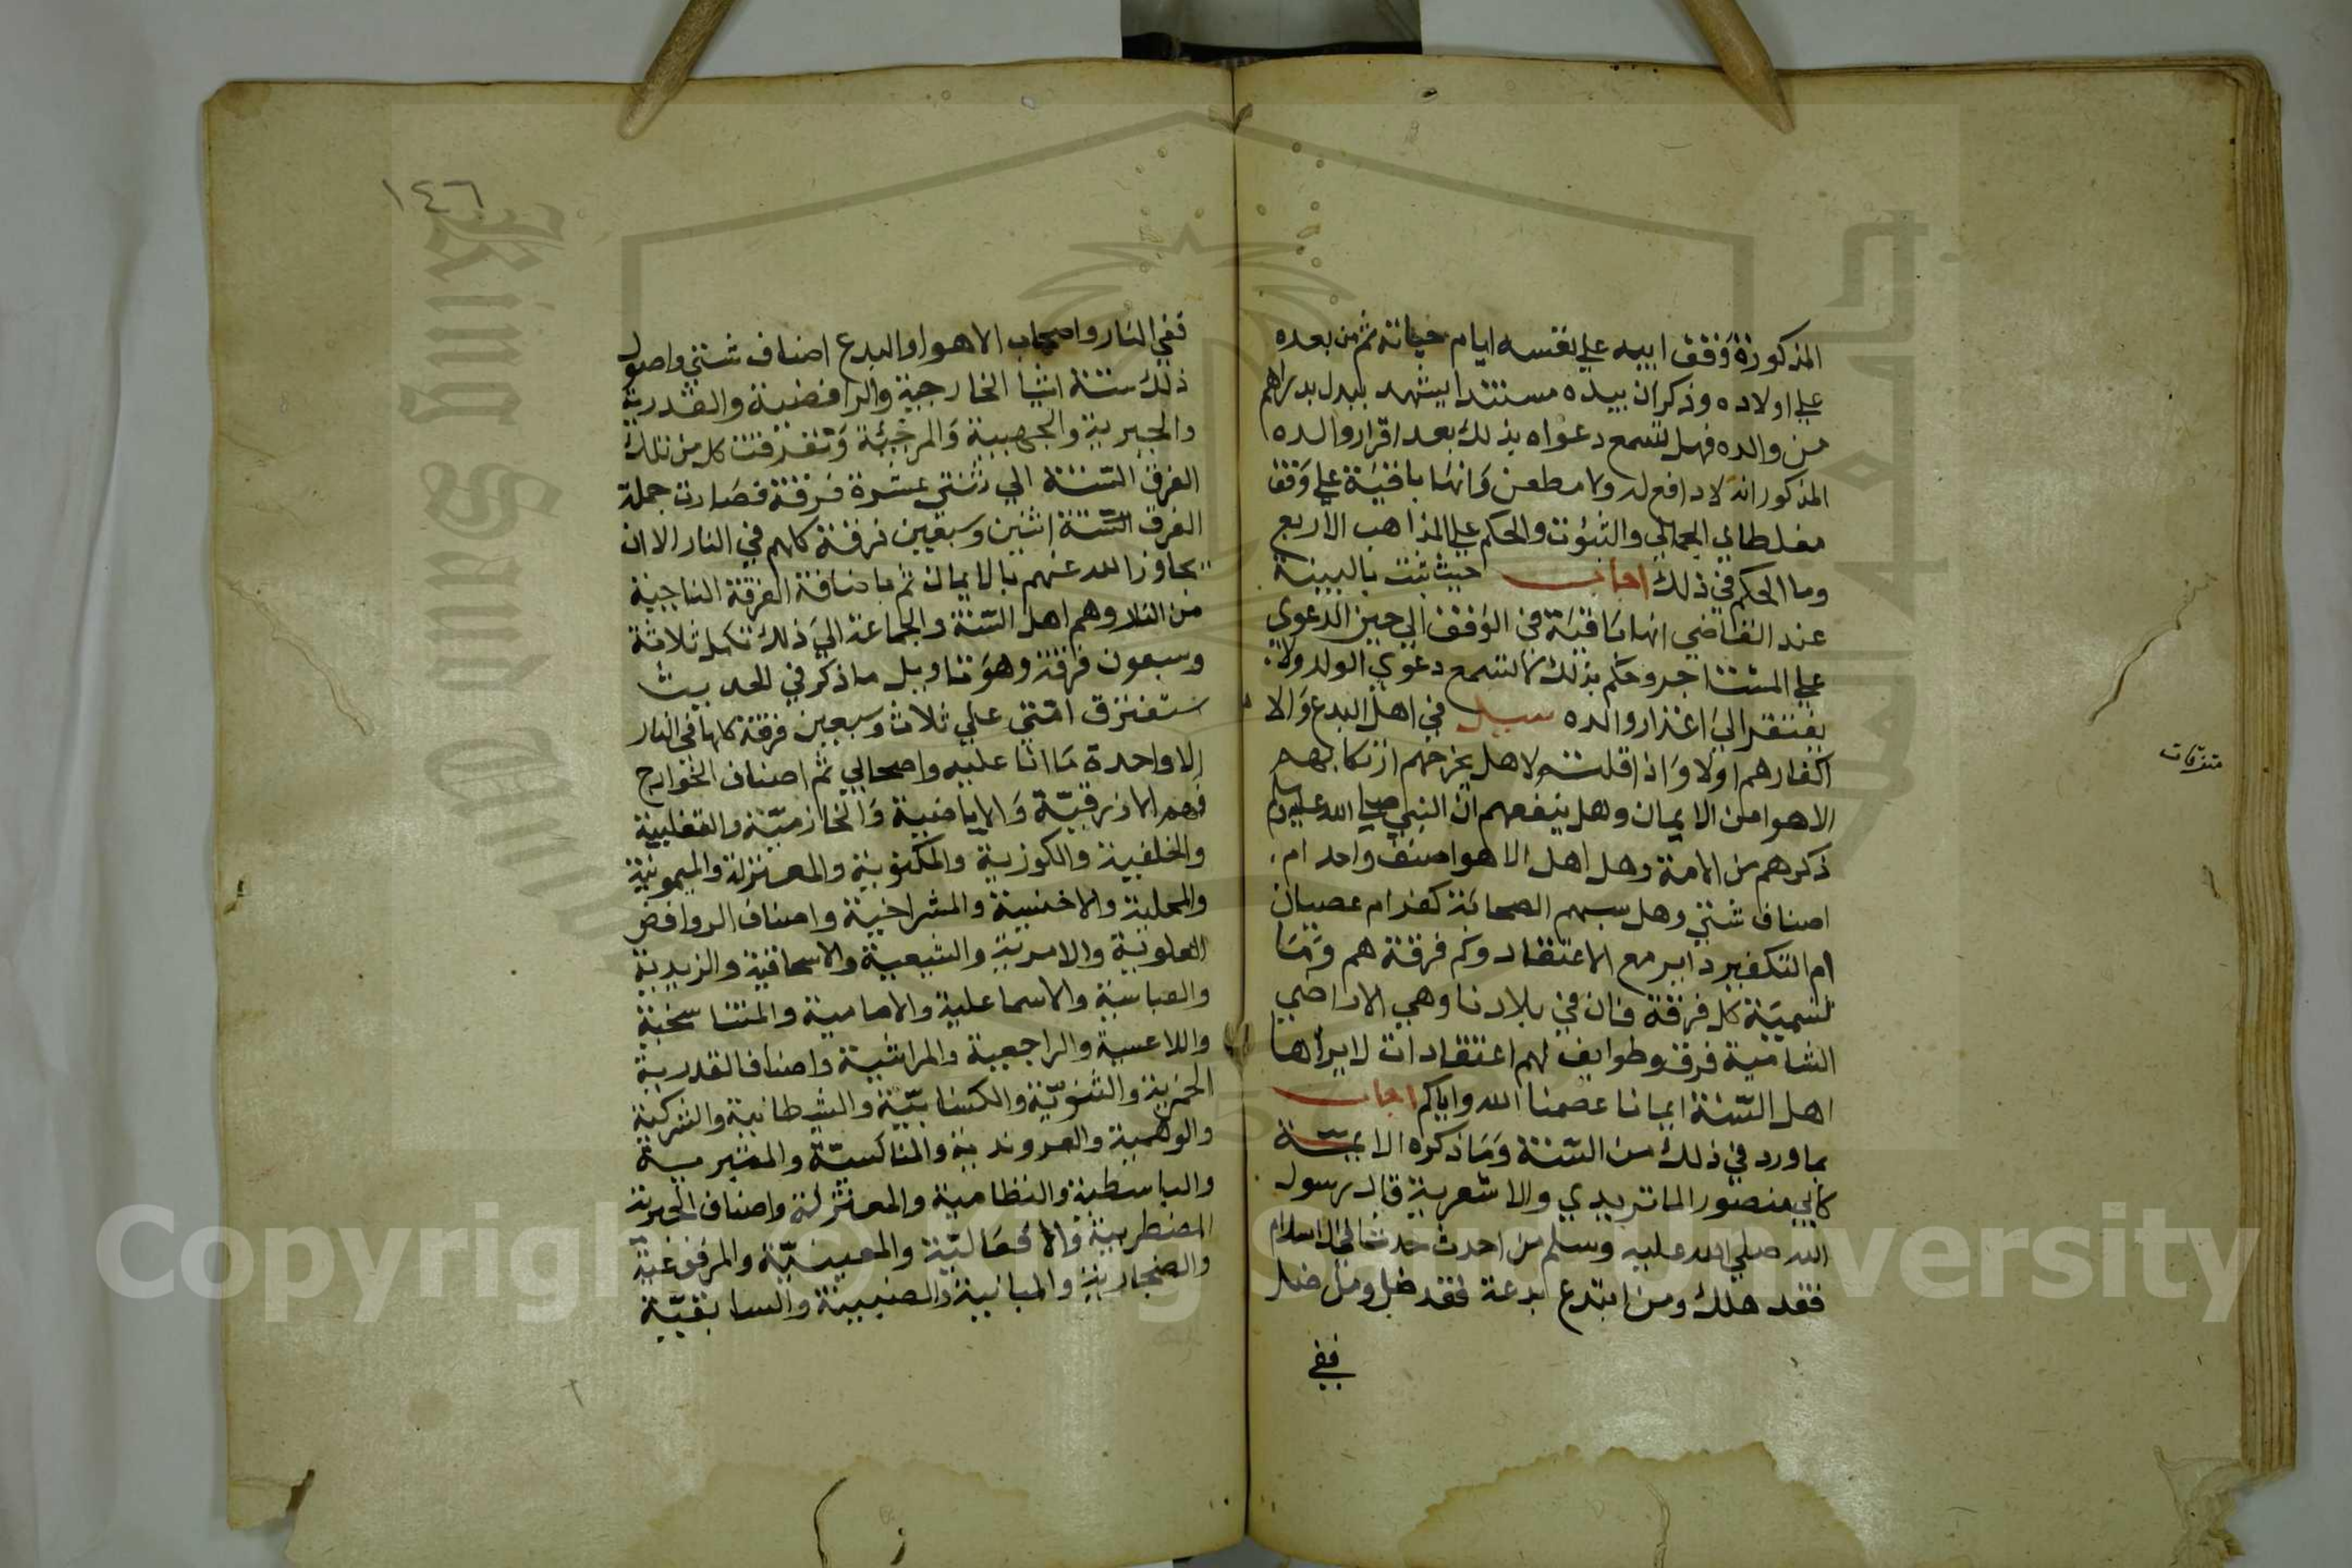 المذكورة وقف ابيه علي نفسه ايام حياته ثم من بعده
علي اولاده وذكر ان بيده مستندا يشهد ببدل بدراهم
من والده فهل تسمع دعواه بذلك بعد اقرار والده
المذكور انه لا دافع له ولا مطعن وانها باقية علي وقف
مغلطاي الجمالي والثبوت والحكم علي المذاهب الاربع
وما الحكم في ذلك اجاب حيث ثبت بالبينة
عند القاضي انها باقية في الوقف الي حين الدعوي
علي المستاجر وحكم بذلك لا تسمع دعوي الولد ولا
يفتقر الي اعذار والده سيل في اهل البدع والا
اكفارهم اولا واذا قلتم لا هل يخرجهم ارتكابهم
الاهوا من الايمان وهل ينفعهم ان النبي صلي الله عليه وسلم
ذكرهم من الامة وهل اهل الاهوا صنف واحد ام
اصناف شتي وهل سبهم الصحابة كفر ام عصيان
ام التكفير داير مع الاعتقاد وكم فرقة هم وما
تسمية كل فرقة فان في بلادنا وهي الاراضي
الشامية فرق وطوايف لهم اعتقادات لا يراها
اهل السنة ايمانا عصمنا الله واياكم اجاب
بما ورد في ذلك من السنة وما ذكره الايمة
كابي منصور الماتريدي والاشعرية قال رسول
الله صلي الله عليه وسلم من احدث حدثا في الاسلام
فقد هلك ومن ابتدع بدعة فقد ضل ومن ضل
ففي
متفرقات
١٤٦
ففي النار واصحاب الاهوا والبدع اصناف شتي واصول
ذلك ستة اشيا الخارجية والرافضية والقدرية
والجبرية والجهمية والمرجئة وتفرقت كل من تلك
الفرق الستة الي اثنتي عشرة فرقة فصارت جملة
الفرق الستة اثنين وسبعين فرقة كلهم في النار الا ان
تجاوز الله عنهم بالايمان ثم باضافة الفرقة الناجية
من النار وهم اهل السنة والجماعة الي ذلك تكمل ثلاثة
وسبعون فرقة وهو تاويل ما ذكر في الحديث
ستفترق امتي علي ثلاث وسبعين فرقة كلها في النار
الا واحدة ما انا عليه واصحابي ثم اصناف الخوارج
فهم الازرقية والاباضية والخازمية والتغلبية
والخلفية والكوزية والمكنوبية والمعتزلة والميمونية
والمحلية والاخنسية والشراخية واصناف الروافض
العلوية والامرية والشيعية والاسحاقية والزيدية
والعباسية والاسماعلية والامامية والمتناسخية
واللاعسية والراجعية والمراشية واصناف القدرية
الحمرية والثنوية والكسابية والشيطانية والشركية
والوهمية والعروندية والمناكسية والمتبرمية
والباسطية والنظامية والمعتزلة واصناف الجبرية
المضطربية والافعالية والمعيية والمرفوغية
والصجارية والمبانية والصنيبية والسابقية